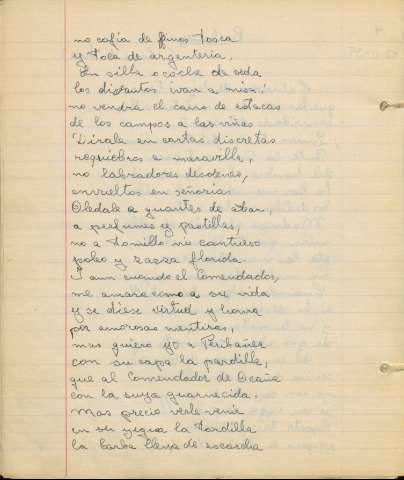 no cofia de pinos tosca
y toca de argentería.
En silla o coche de seda
los disantos ivan a misa;
no vendrá el carro de estacas
de los campos a las viñas
Dirale en cartas discretas
requiebros a maravilla,
no labradores desdenes,
envueltos en señorías
Olerale a guantes de ambar,
a perfumes y pastillas;
no a tomillo ni cantueso
poleo y zarza florida.
Y aun cuando el Comendador,
me amara como a su vida
y se diese virtud y honra
por amorosas mentiras,
mas quiero yo a Peribañez
con su capa la pardilla,
que al Comendador de Ocaña
con la suya guarnecida.
Mas precio verle venir
en su yegua la tordilla
la barba llena de escarcha